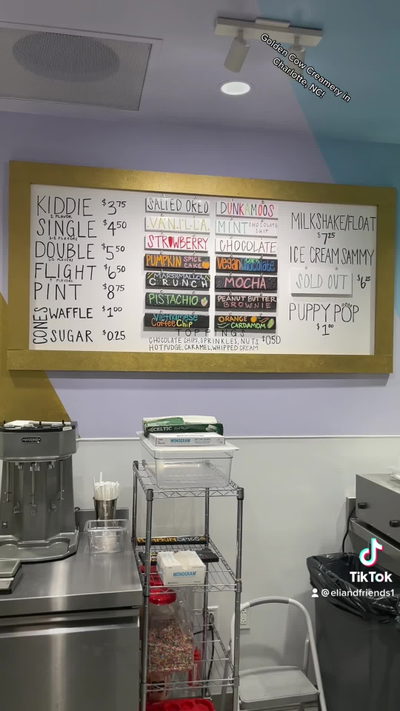 Golden Cow Creamery in
Charlotte, NC!
KIDDIE $3.75
1 FLAVOR
SINGLE $4.50
DOUBLE $5.50
FLIGHT $6.50
PINT $8.75
CONES
WAFFLE $1.00
SUGAR $0.25
SALTED OREO
VANILLA
STRAWBERRY
PUMPKIN SPICE CAKE
CRUNCH
PISTACHIO
VIETNAMESE
Coffee Chip
DUNKAROOS
MINT CHOCOLATE CHIP
CHOCOLATE
Vegan Chocolate
MOCHA
PEANUT BUTTER
BROWNIE
ORANGE
CARDAMOM
TOPPINGS
CHOCOLATE CHIPS, SPRINKLES, NUTS $0.50
HOT FUDGE, CARAMEL, WHIPPED CREAM
MILKSHAKE/FLOAT
$7.25
ICE CREAM SAMMY
SOLD OUT $6.25
PUPPY POP
$1.00
CELTIC
MONOGRAM
MONOGRAM
TikTok
@eliandfriends1